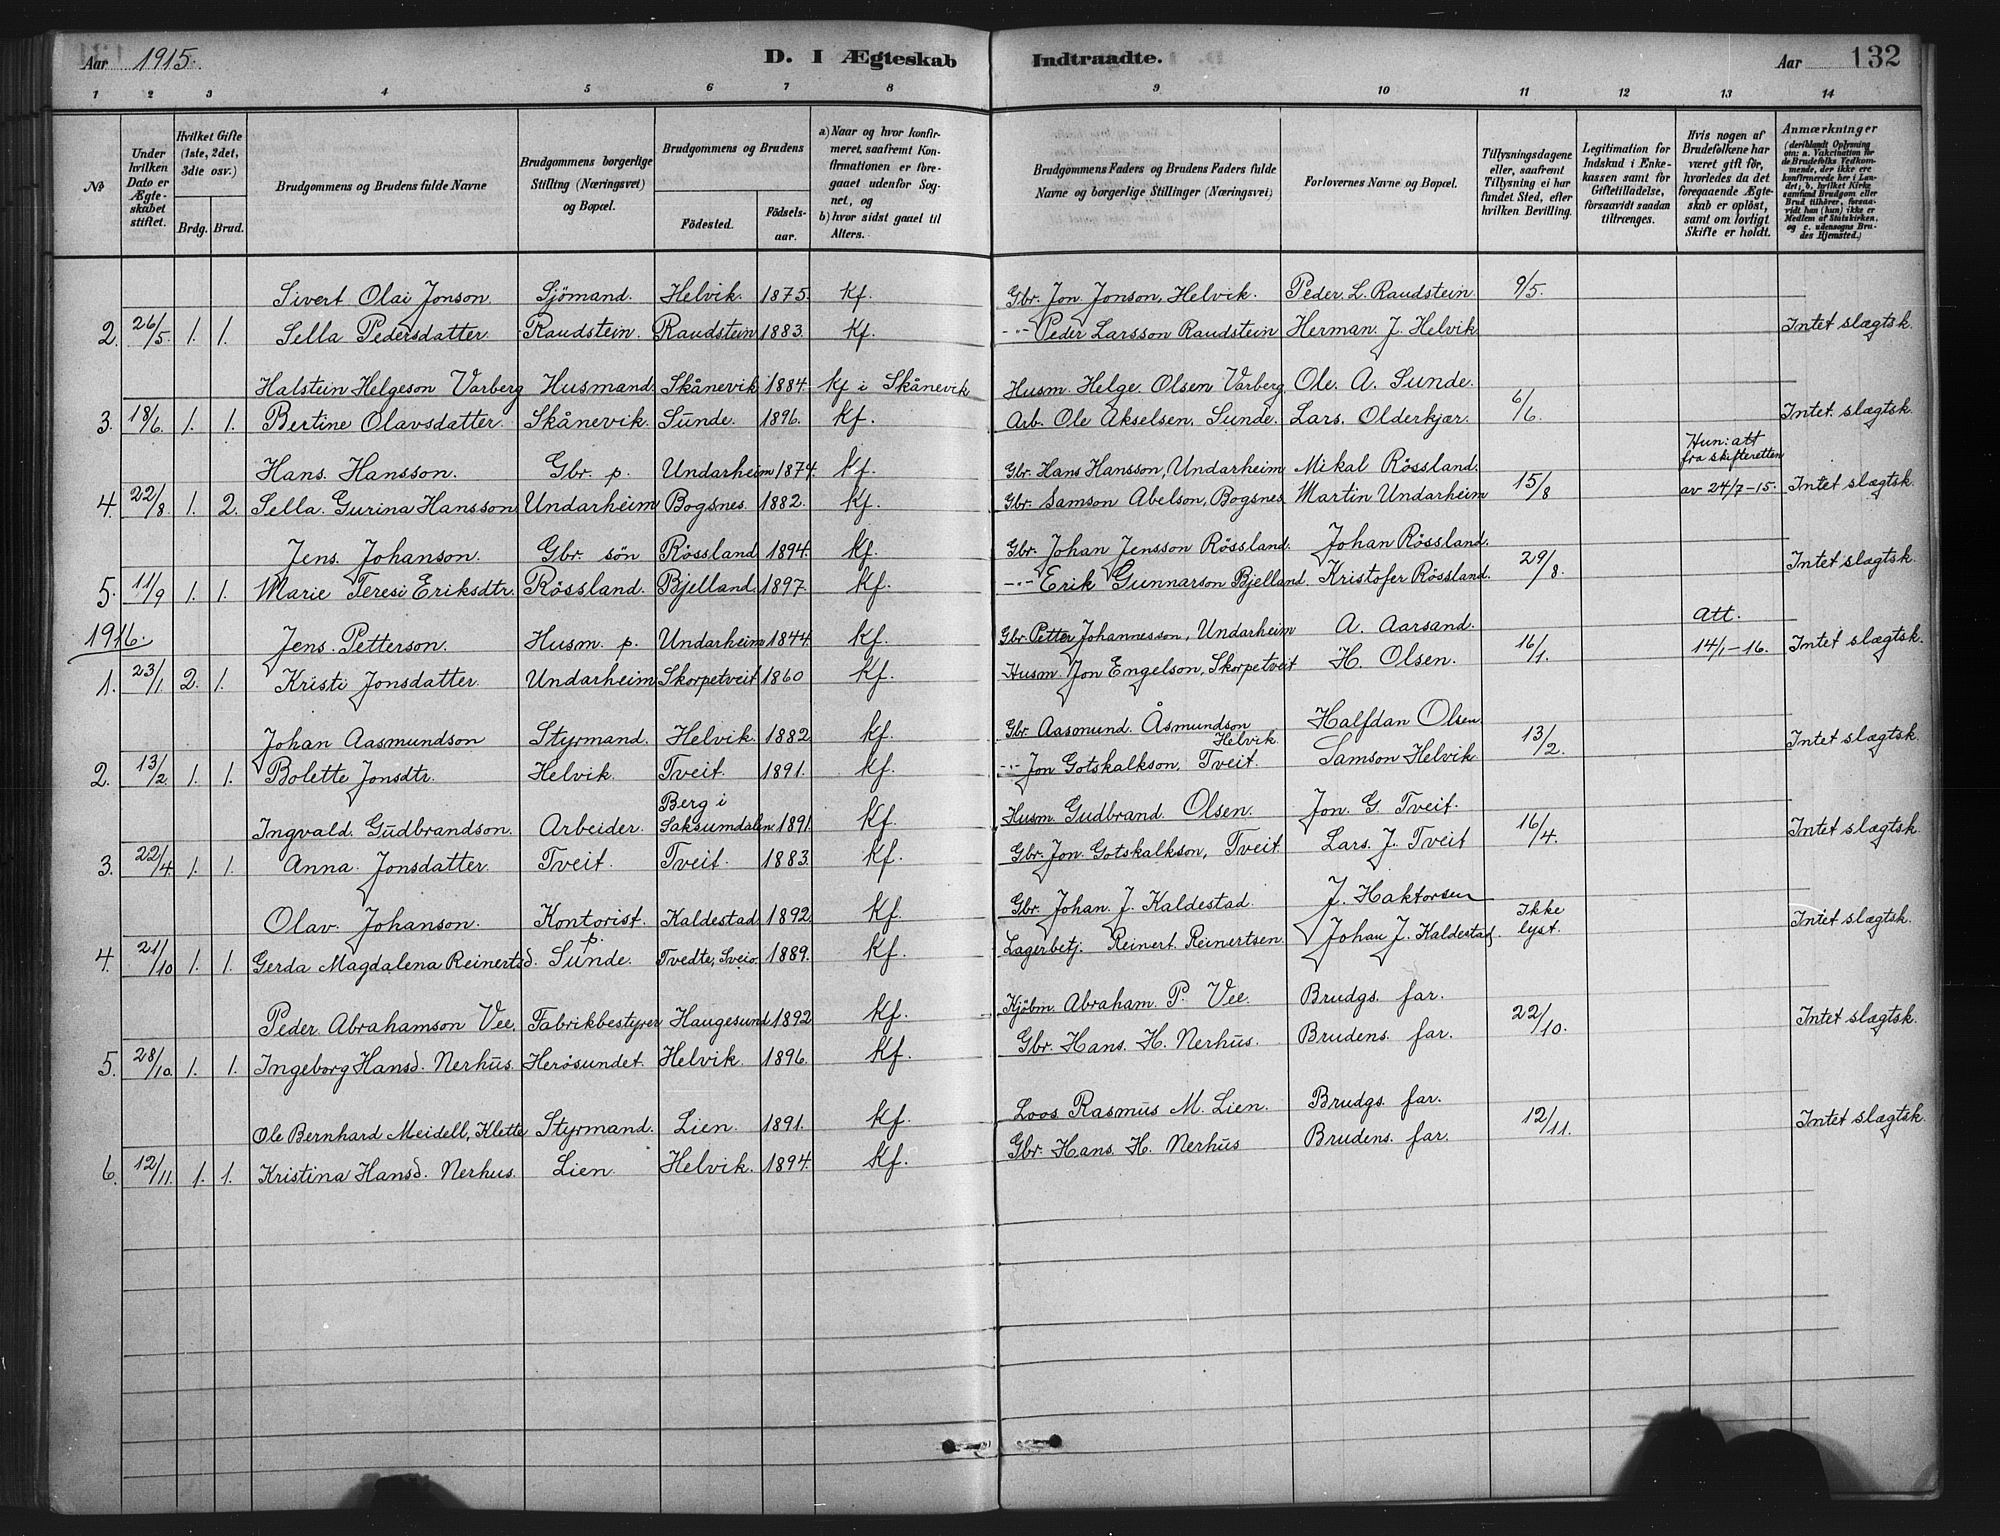 Aar 1915. D. I Ægteskab Indtraadte. Aar 132
1 2 3 4 5 6 7 8 9 10 11 12 13 14
№
Under hvilken Dato er Ægteskabet stiftet.
Hvilket Gifte (1ste, 2det, 3die osv.)
Brdg. Brud.
Brudgommens og Brudens fulde Navne
Brudgommens borgerlige Stilling (Næringsvei) og Bopæl.
Brudgommens og Brudens
Fødested. Fødselsaar.
a) Naar og hvor konfirmeret, saafremt Konfirmationen er foregaaet udenfor Sognet, og
b) hvor sidst gaaet til Alters.
Brudgommens Faders og Brudens Faders fulde Navne og borgerlige Stillinger (Næringsvei)
Forlovernes Navne og Bopæl.
Tillysningsdagene eller, saafremt Tillysning ei har fundet Sted, efter hvilken Bevilling.
Legitimation for Indskud i Enkekassen samt for Giftetilladelse, forsaavidt saadan tiltrænges.
Hvis nogen af Brudefolkene har været gift før, hvorledes da det foregaaende Ægteskab er opløst, samt om lovligt Skifte er holdt.
Anmærkninger (deriblandt Oplysning om: a. Vakcination for de Brudefolks Vedkommende, der ikke ere konfirmerede her i Landet; b. hvilket Kirkesamfund Brudgom eller Brud tilhører, forsaavidt han (hun) ikke er Medlem af Statskirken, og c. udensogns Brudes Hjemsted.)
Sivert Olai Jonson. Sjömand. Helvik. 1875. Kf. Gbr. Jon Jonson, Helvik. Peder L. Raudstein 9/5.
2. 26/5 1. 1. Sella Pedersdatter Raudstein. Raudstein 1883. Kf. -"- Peder Larsson Raudstein Herman J. Helvik Intet slægtsk.
Halstein Helgeson Varberg Husmand. Skånevik 1884. Kf i Skånevik Husm. Helge Olsen Varberg. Ole. A. Sunde. 6/6
3. 18/6 1. 1. Bertine Olavsdatter. Skånevik. Sunde. 1896. Kf. Arb. Ole Akselsen, Sunde. Lars. Olderkjær. Intet slægtsk.
Hans. Hansson. Gbr. p. Undarheim 1874. Kf. Gbr. Hans Hansson, Undarheim Mikal Rössland. 15/8 Hun: att fra skifteretten
4. 22/8 1. 2. Sella. Gurina Hansson Undarheim Bogsnes. 1882. Kf. Gbr. Samson Abelson, Bogsnes Martin Undarheim av 24/7-15. Intet slægtsk.
Jens. Johanson. Gbr. sön Rössland 1894. Kf. Gbr. Johan Jensson Rössland. Johan Rössland. 29/8.
5. 11/9 1. 1. Marie Teresi Eriksdtr. Rössland. Bjelland. 1897. Kf. -"- Erik Gunnarson Bjelland. Kristofer Rössland. Intet slægtsk.
1916. Jens. Petterson. Husm. p. Undarheim 1844. Kf. Gbr. Petter Johannesson, Undarheim A. Aarsand. 16/1. Att.
1. 23/1 2. 1. Kristi Jonsdatter Undarheim Skorpetveit 1860 Kf. Husm. Jon Engelson, Skorpetveit H. Olsen. 14/1-16. Intet slægtsk.
Johan Aasmundson Styrmand. Helvik. 1882 Kf. Gbr. Aasmund. Åsmundson Helvik. Halfdan Olsen. 13/2.
2. 13/2 1. 1. Bolette Jonsdtr. Helvik. Tveit. 1891. Kf. -"- Jon Gotskalkson, Tveit. Samson Helvik Intet slægtsk.
Ingvald. Gudbrandson. Arbeider. Berg i Saksumdalen 1891. Kf. Husm. Gudbrand Olsen. Jon. G. Tveit. 16/4.
3. 22/4 1. 1. Anna Jonsdatter. Tveit. Tveit. 1883. Kf. Gbr. Jon. Gotskalkson, Tveit Lars. J. Tveit Intet slægtsk.
Olav. Johanson. Kontorist. p. Kaldestad 1892. Kf. Gbr. Johan. J. Kaldestad. J. Haktorsen Ikke lyst.
4. 21/10 1. 1. Gerda Magdalena Reinertsd. Sunde. Tvedte, Sveio. 1889. Kf. Lagerbetj. Reinert. Reinertsen. Johan J. Kaldestad. Intet slægtsk.
Peder. Abrahamson Vee. Fabrikbestyrer Haugesund 1892 Kf. Kjöbm. Abraham. P. Vee. Brudgs. far. 22/10.
5. 28/10. 1. 1. Ingeborg Hansd. Nerhus. Herösundet. Helvik. 1896. Kf. Gbr. Hans. H. Nerhus. Brudens. far. Intet slægtsk.
Ole Bernhard Meidell, Klette Styrmand. Lien. 1891. Kf. Loos Rasmus M. Lien. Brudgs. far. 12/11.
6. 12/11. 1. 1. Kristina Hansd. Nerhus. Lien. Helvik. 1894. Kf. Gbr. Hans. H. Nerhus Brudens. far. Intet slægtsk.